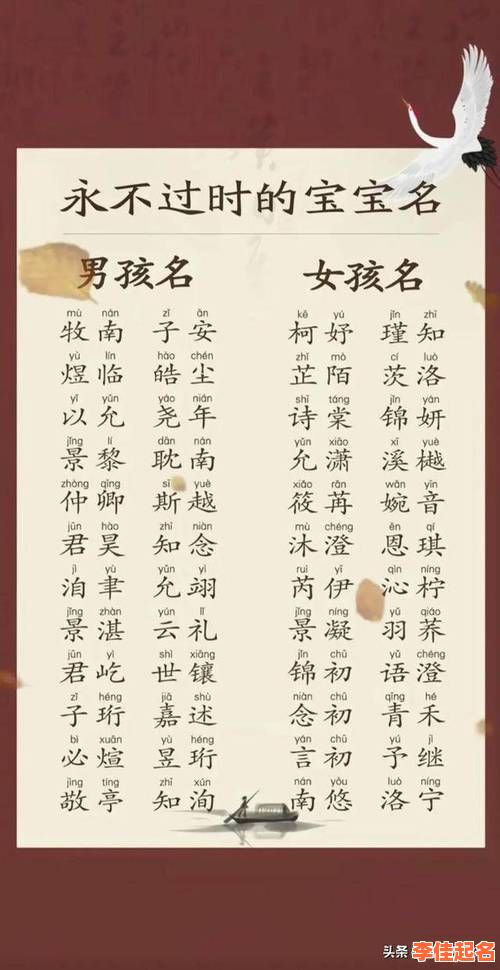 永不过时的宝宝名
男孩名 女孩名
mù nán zǐ ān kē yú jǐn zhī
牧南 子安 柯妤 瑾知
yù lín hào chén zhǐ mò cí luò
煜临 皓尘 芷陌 茨洛
yǐ yǔn yáo nián shī táng jǐn yán
以允 尧年 诗棠 锦妍
jǐng lí dān nán yǔn xiāo xī yuè
景黎 耽南 允潇 溪樾
zhòng qīng sī yuè xiǎo rǎn wǎn yīn
仲卿 斯越 筱苒 婉音
jūn hào zhī niàn mù chéng ēn qí
君昊 知念 沐澄 恩琪
jì yù yǔn yì ruì yī qìn níng
洎聿 允翊 芮伊 沁柠
jǐng zhàn yún lǐ jǐng níng yǔ qiáo
景湛 云礼 景凝 羽荞
jūn yì shì xiāng jǐn chū yǔ chéng
君屹 世镶 锦初 语澄
zǐ héng jiā shù niàn chū qīng hé
子珩 嘉述 念初 青禾
bì xuān yù héng yán chū yǔ jì
必煊 昱珩 言初 予继
jìng tíng zhī xún nán yōu luò níng
敬亭 知洵 南悠 洛宁
头条 李佳起名